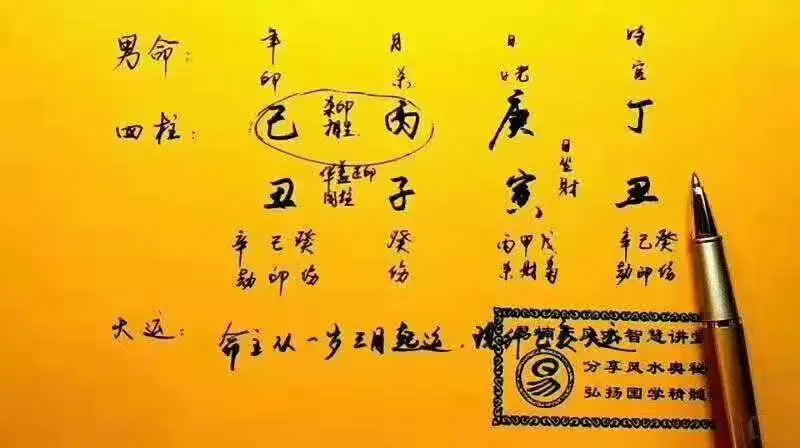 男命: 年 月 日 时
印 杀 日元 官
四柱: 己 杀印相生 丙 庚 丁
日坐财
丑 华盖正印同柱 子 寅 丑
辛 己 癸 癸 丙 甲 戊 辛 己 癸
劫 印 伤 伤 杀 财 枭 劫 印 伤
大运: 命主从一岁三月起运,
智慧讲堂
分享风水奥秘
弘扬国学精髓
易